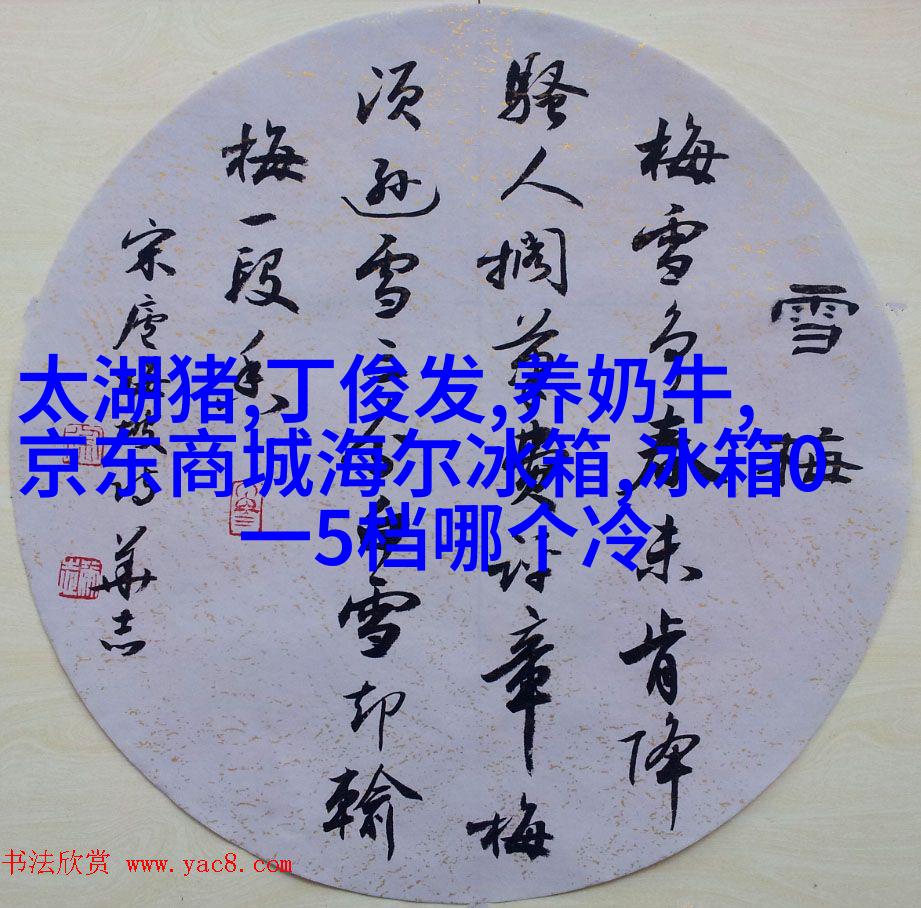 雪梅
梅雪争春未肯降
騷人擱筆費評章梅
須遜雪三分白雪却輸
梅一段香
宋盧梅坡詩 華志
太湖猪,丁俊发,养奶牛,
京东商城海尔冰箱,冰箱0
一5档哪个冷
书法欣赏 www.yac8.com